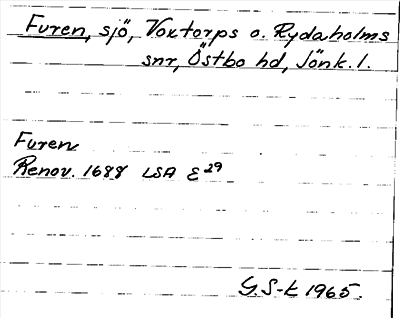 Furen, sjö, Voxtorps o. Rydaholms
snr, Östbo hd, Jönk. l.
Furen
Renov. 1688 LSA E 29
G.S-k 1965.